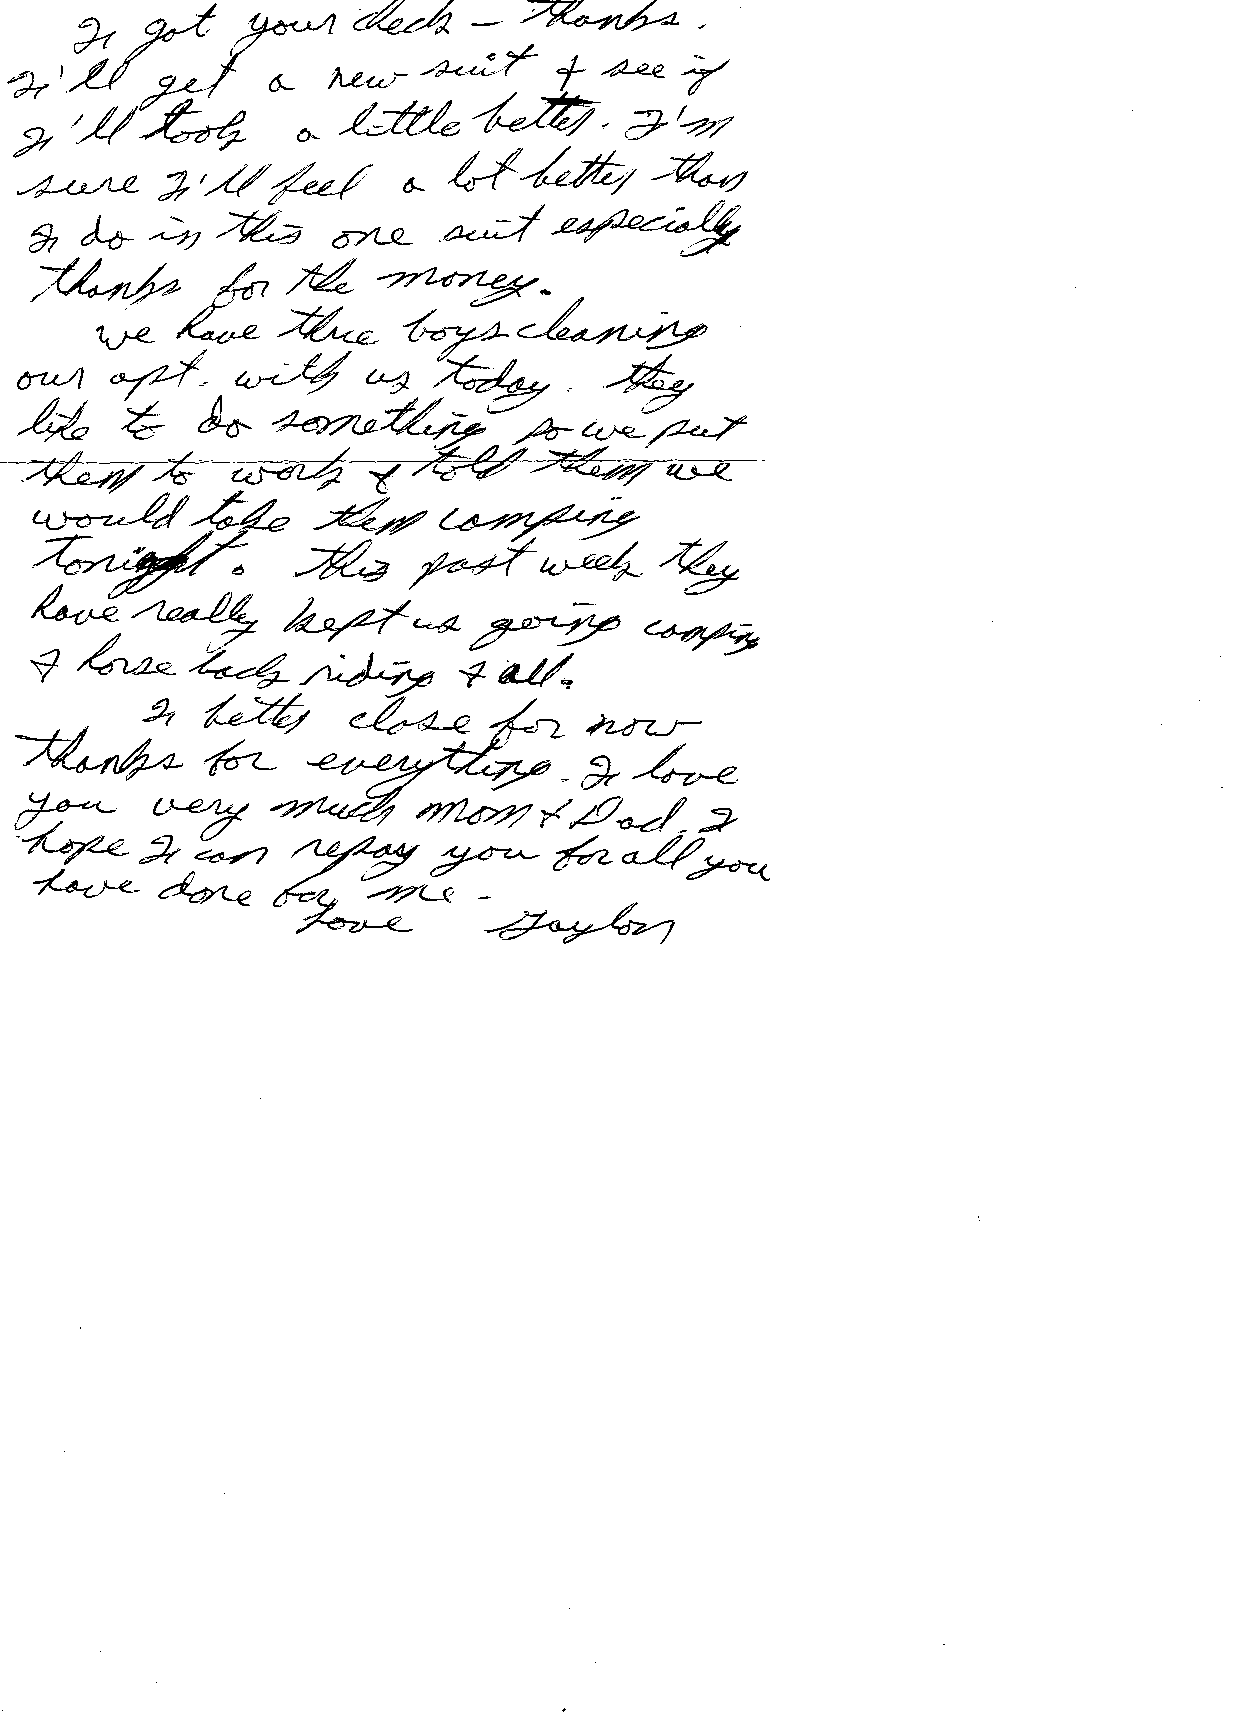 I got your check – thanks.
I'll get a new suit & see if
I'll look a little better. I'm
sure I'll feel a lot better than
I do in this one suit especially
thanks for the money.
we have three boys cleaning
our apt. with us today. they
like to do something so we put
them to work & told them we
would take them camping
tonight. this past week they
have really kept us going camping
& horse back riding & all.
I better close for now
thanks for everything. I love
you very much Mom & Dad. I
hope I can repay you for all you
have done for me -
Love Gaylon